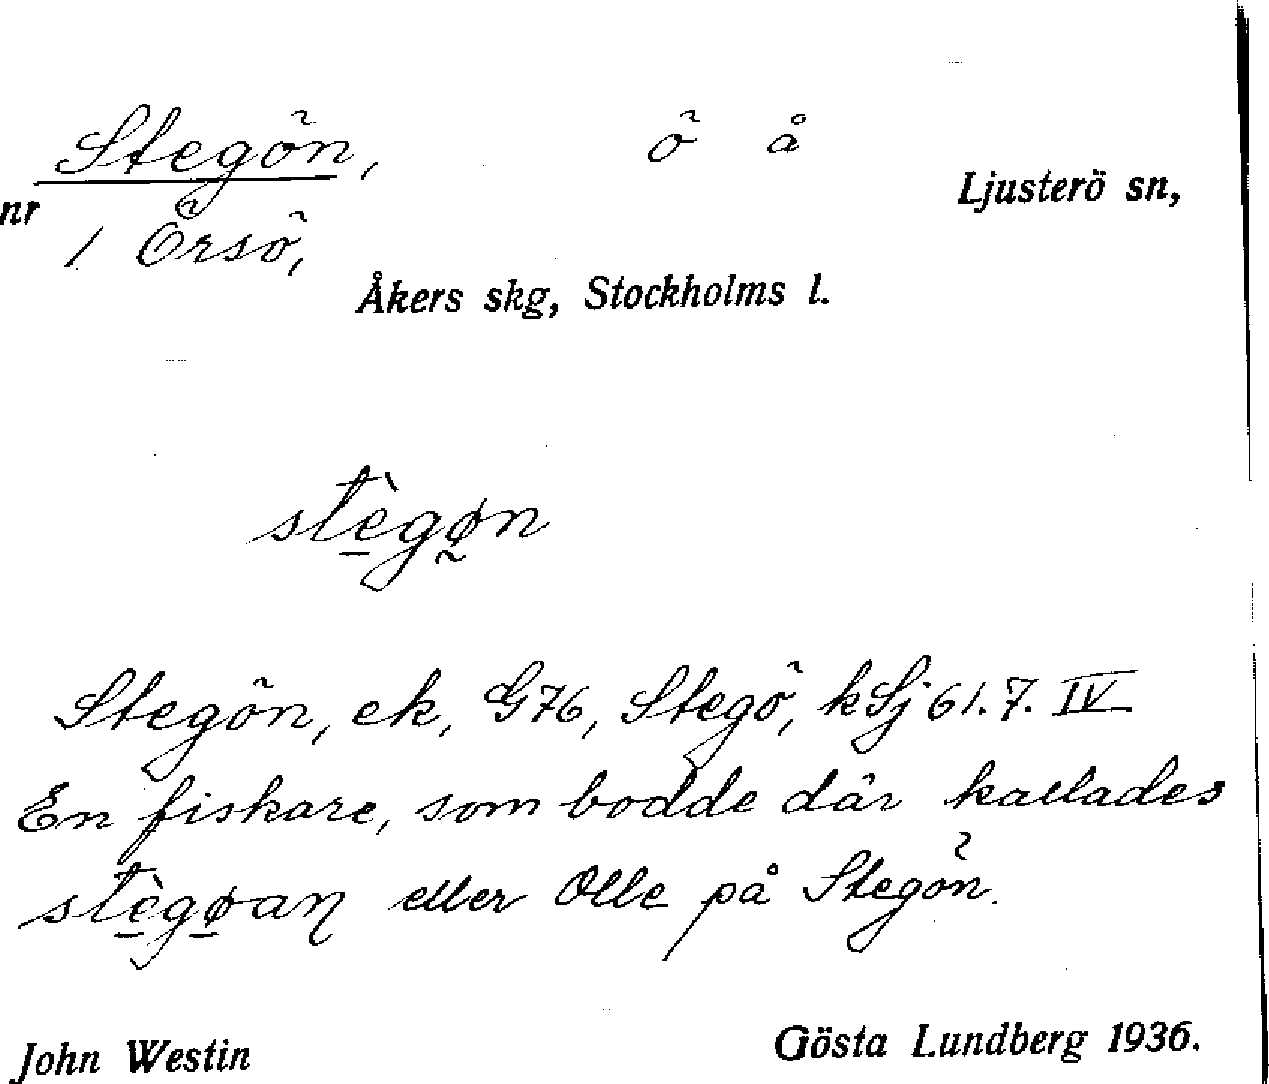 Stegön, ö å
Ljusterö sn,
nr 1 Örsö,
Åkers skg, Stockholms l.
stè̠gø̰n
Stegön, ek, G76, Stegö, kSj 61.7. IV
En fiskare, som bodde där kallades
stè̠gø̠aŋ eller Olle på Stegön.
John Westin Gösta Lundberg 1936.